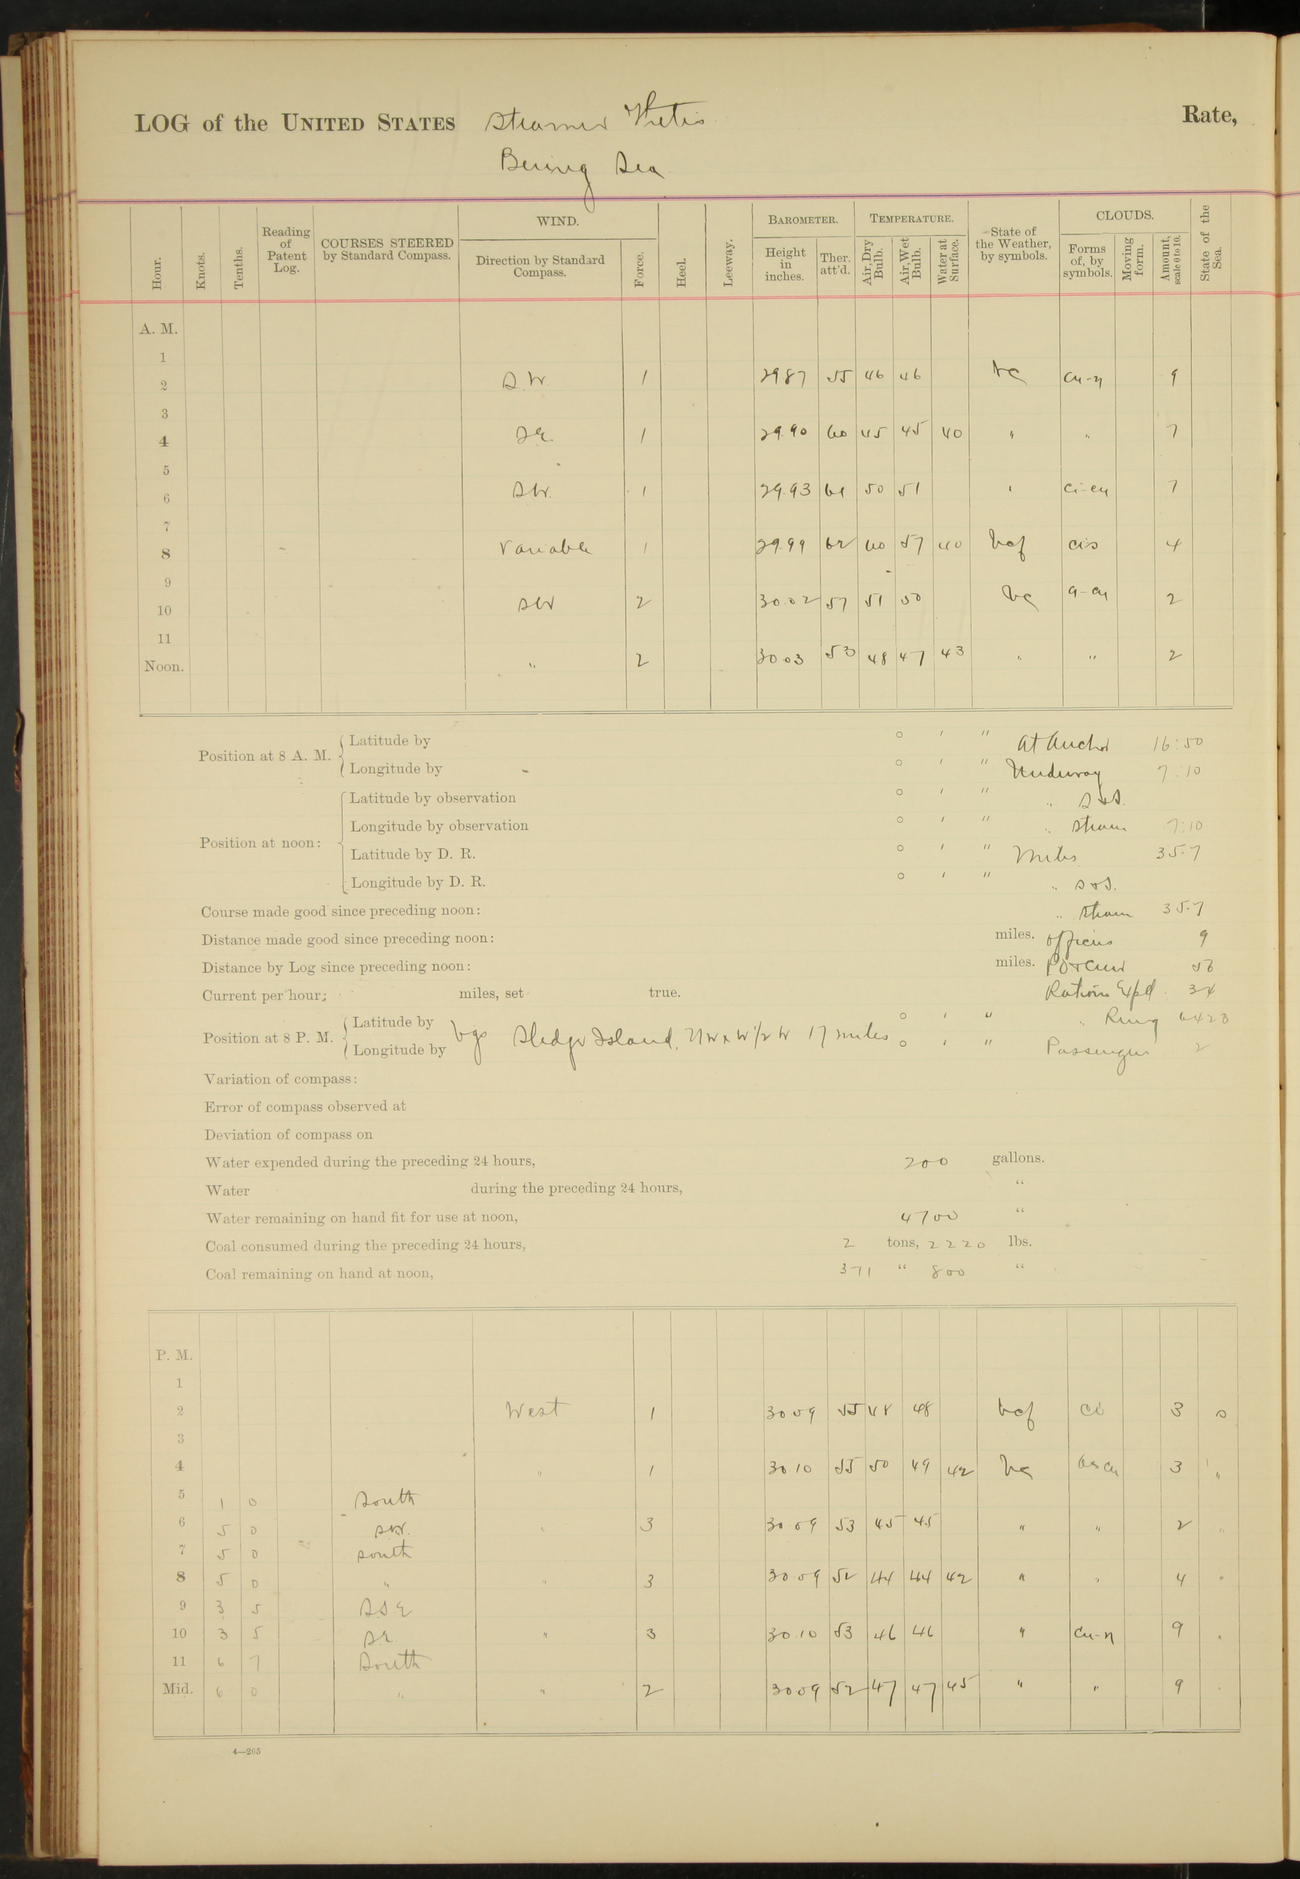 LOG of the UNITED STATES Steamer Thetis Rate,
Bering Sea
Hour. Knots. Tenths. Reading of Patent Log. COURSES STEERED by Standard Compass. WIND. Direction by Standard Compass. Force. Heel. Leeway. BAROMETER. Height in inches. Ther. att'd. TEMPERATURE. Air, Dry Bulb. Air, Wet Bulb. Water at Surface. State of the Weather, by symbols. CLOUDS. Forms of, by symbols. Moving form. Amount, scale 0 to 10. State of the Sea.
A. M.
1
2 S.W. 1 29 87 55 46 46 bc cu-n 9
3
4 SE. 1 29.90 60 45 45 40 " " 7
5
6 SW. 1 29.93 61 50 51 " ci-cu 7
7
8 Variable 1 29.99 62 60 57 40 bcf cis 4
9
10 SW 2 30.02 57 51 50 bc 2
11
Noon. " 2 30 03 53 48 47 43 " " 2
Position at 8 A. M. Latitude by ° ' " At Anchor 16:50
Longitude by ° ' " Underway 7:10
Position at noon: Latitude by observation ° ' " " S&S.
Longitude by observation ° ' " " Steam 7:10
Latitude by D. R. ° ' " Miles 35.7
Longitude by D. R. ° ' " " S&S.
Course made good since preceding noon: " Steam 35.7
Distance made good since preceding noon: miles. Officers 9
Distance by Log since preceding noon: miles. PO & Crew 56
Current per hour; miles, set true. Rations Expd. 34
Position at 8 P. M. Latitude by ° ' " " Remg 6428
Longitude by bgs Sledge Island, NW x W 1/2 W 17 miles ° ' " Passengers 2
Variation of compass:
Error of compass observed at
Deviation of compass on
Water expended during the preceding 24 hours, 200 gallons.
Water during the preceding 24 hours, "
Water remaining on hand fit for use at noon, 4700 "
Coal consumed during the preceding 24 hours, 2 tons, 2220 lbs.
Coal remaining on hand at noon, 371 " 800 "
P. M.
1
2 West 1 30 09 55 48 48 bcf ci 3 s
3
4 " 1 30 10 55 50 49 42 bc 3 "
5 1 0 South
6 5 0 SW. " 3 30 09 53 45 45 " " 2 "
7 5 0 South
8 5 0 " " 3 30 09 52 44 44 42 " " 4 "
9 3 5 SSE
10 3 5 SE " 3 30.10 53 46 46 " cu-n 9 "
11 6 7 South
Mid. 6 0 " " 2 30 09 52 47 47 45 " " 9 "
4—265